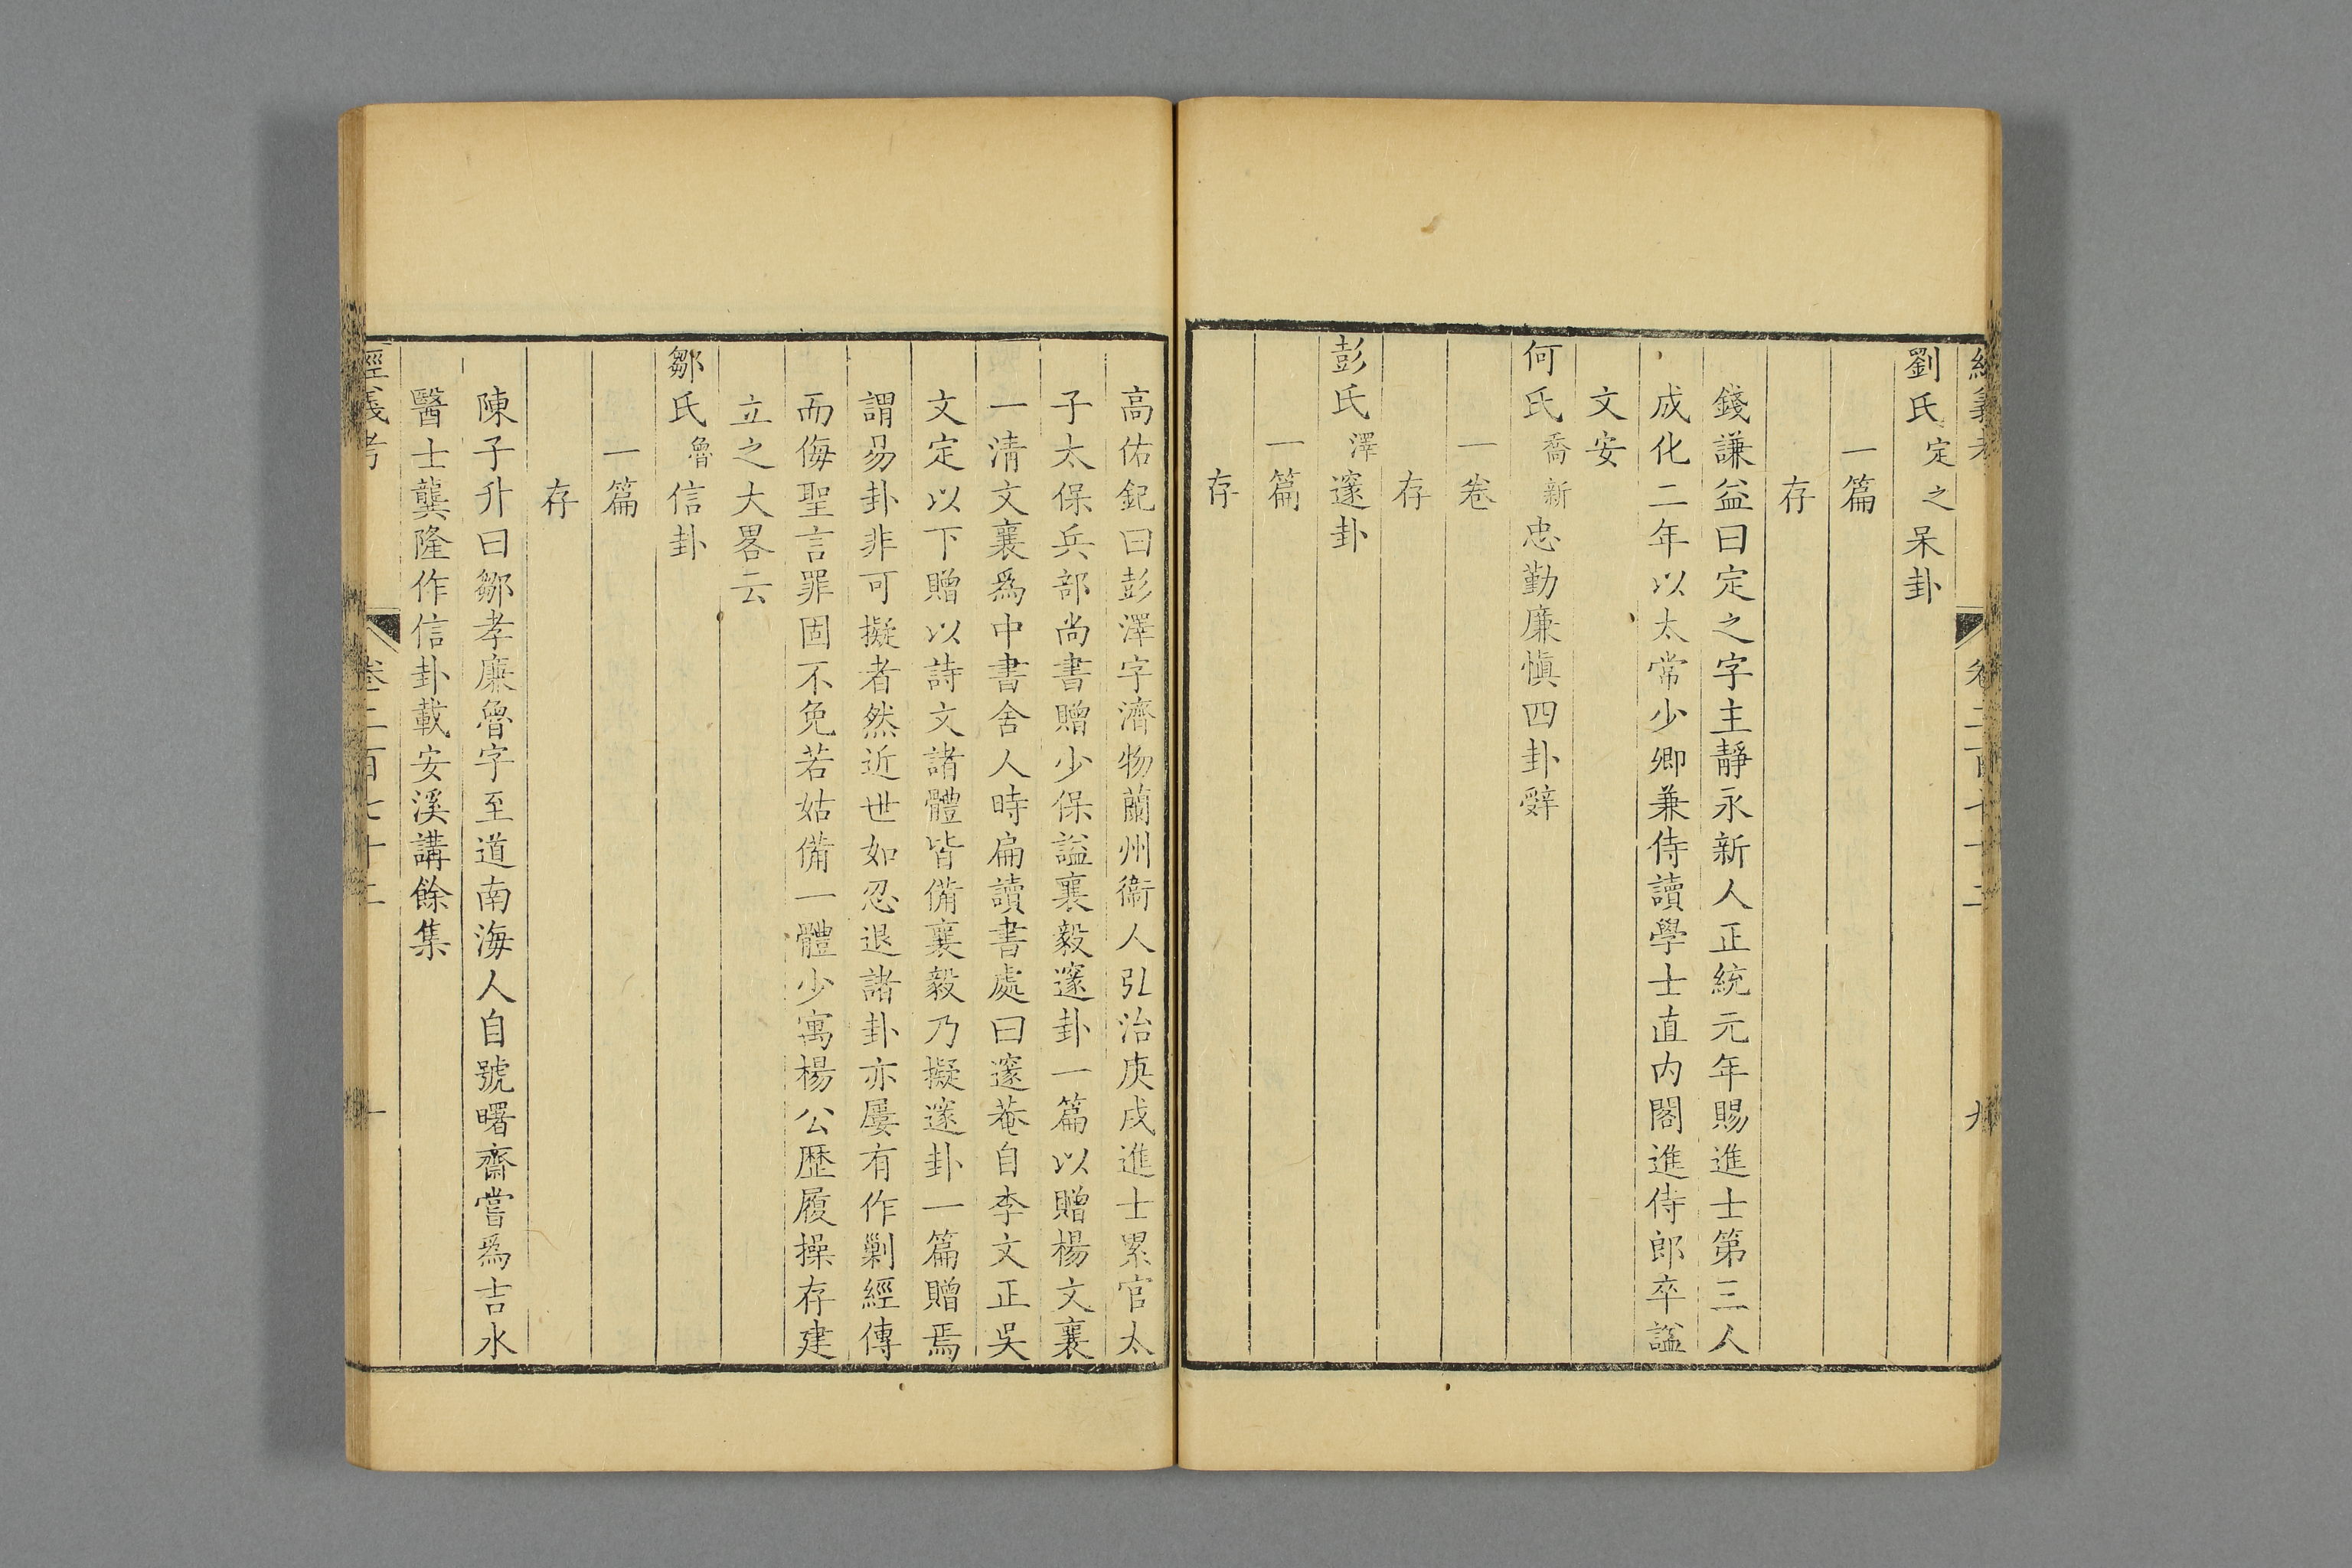 劉氏定之呆卦
一篇
存
錢謙益曰定之字主靜永新人正統元年賜進士第三人
成化二年以太常少卿兼侍讀學士直內閣進侍郎卒諡
文安
何氏喬新忠勤廉愼四卦辭
一卷
存
彭氏澤邃卦
一篇
存
高佑釲曰彭澤字濟物蘭州衞人弘治庚戌進士累官太
子太保兵部尚書贈少保諡襄毅邃卦一篇以贈楊文襄
一清文襄爲中書舍人時扁讀書處曰邃菴自李文正吳
文定以下贈以詩文諸體皆備襄毅乃擬邃卦一篇贈焉
謂易卦非可擬者然近世如忍退諸卦亦屢有作剿經傳
而侮聖言罪固不免若姑備一體少寓楊公歷履操存建
立之大畧云
鄒氏魯信卦
一篇
存
陳子升曰鄒孝廉魯字至道南海人自號曙齋嘗爲吉水
醫士龔隆作信卦載安溪講餘集
經義考 卷二百七十二 十